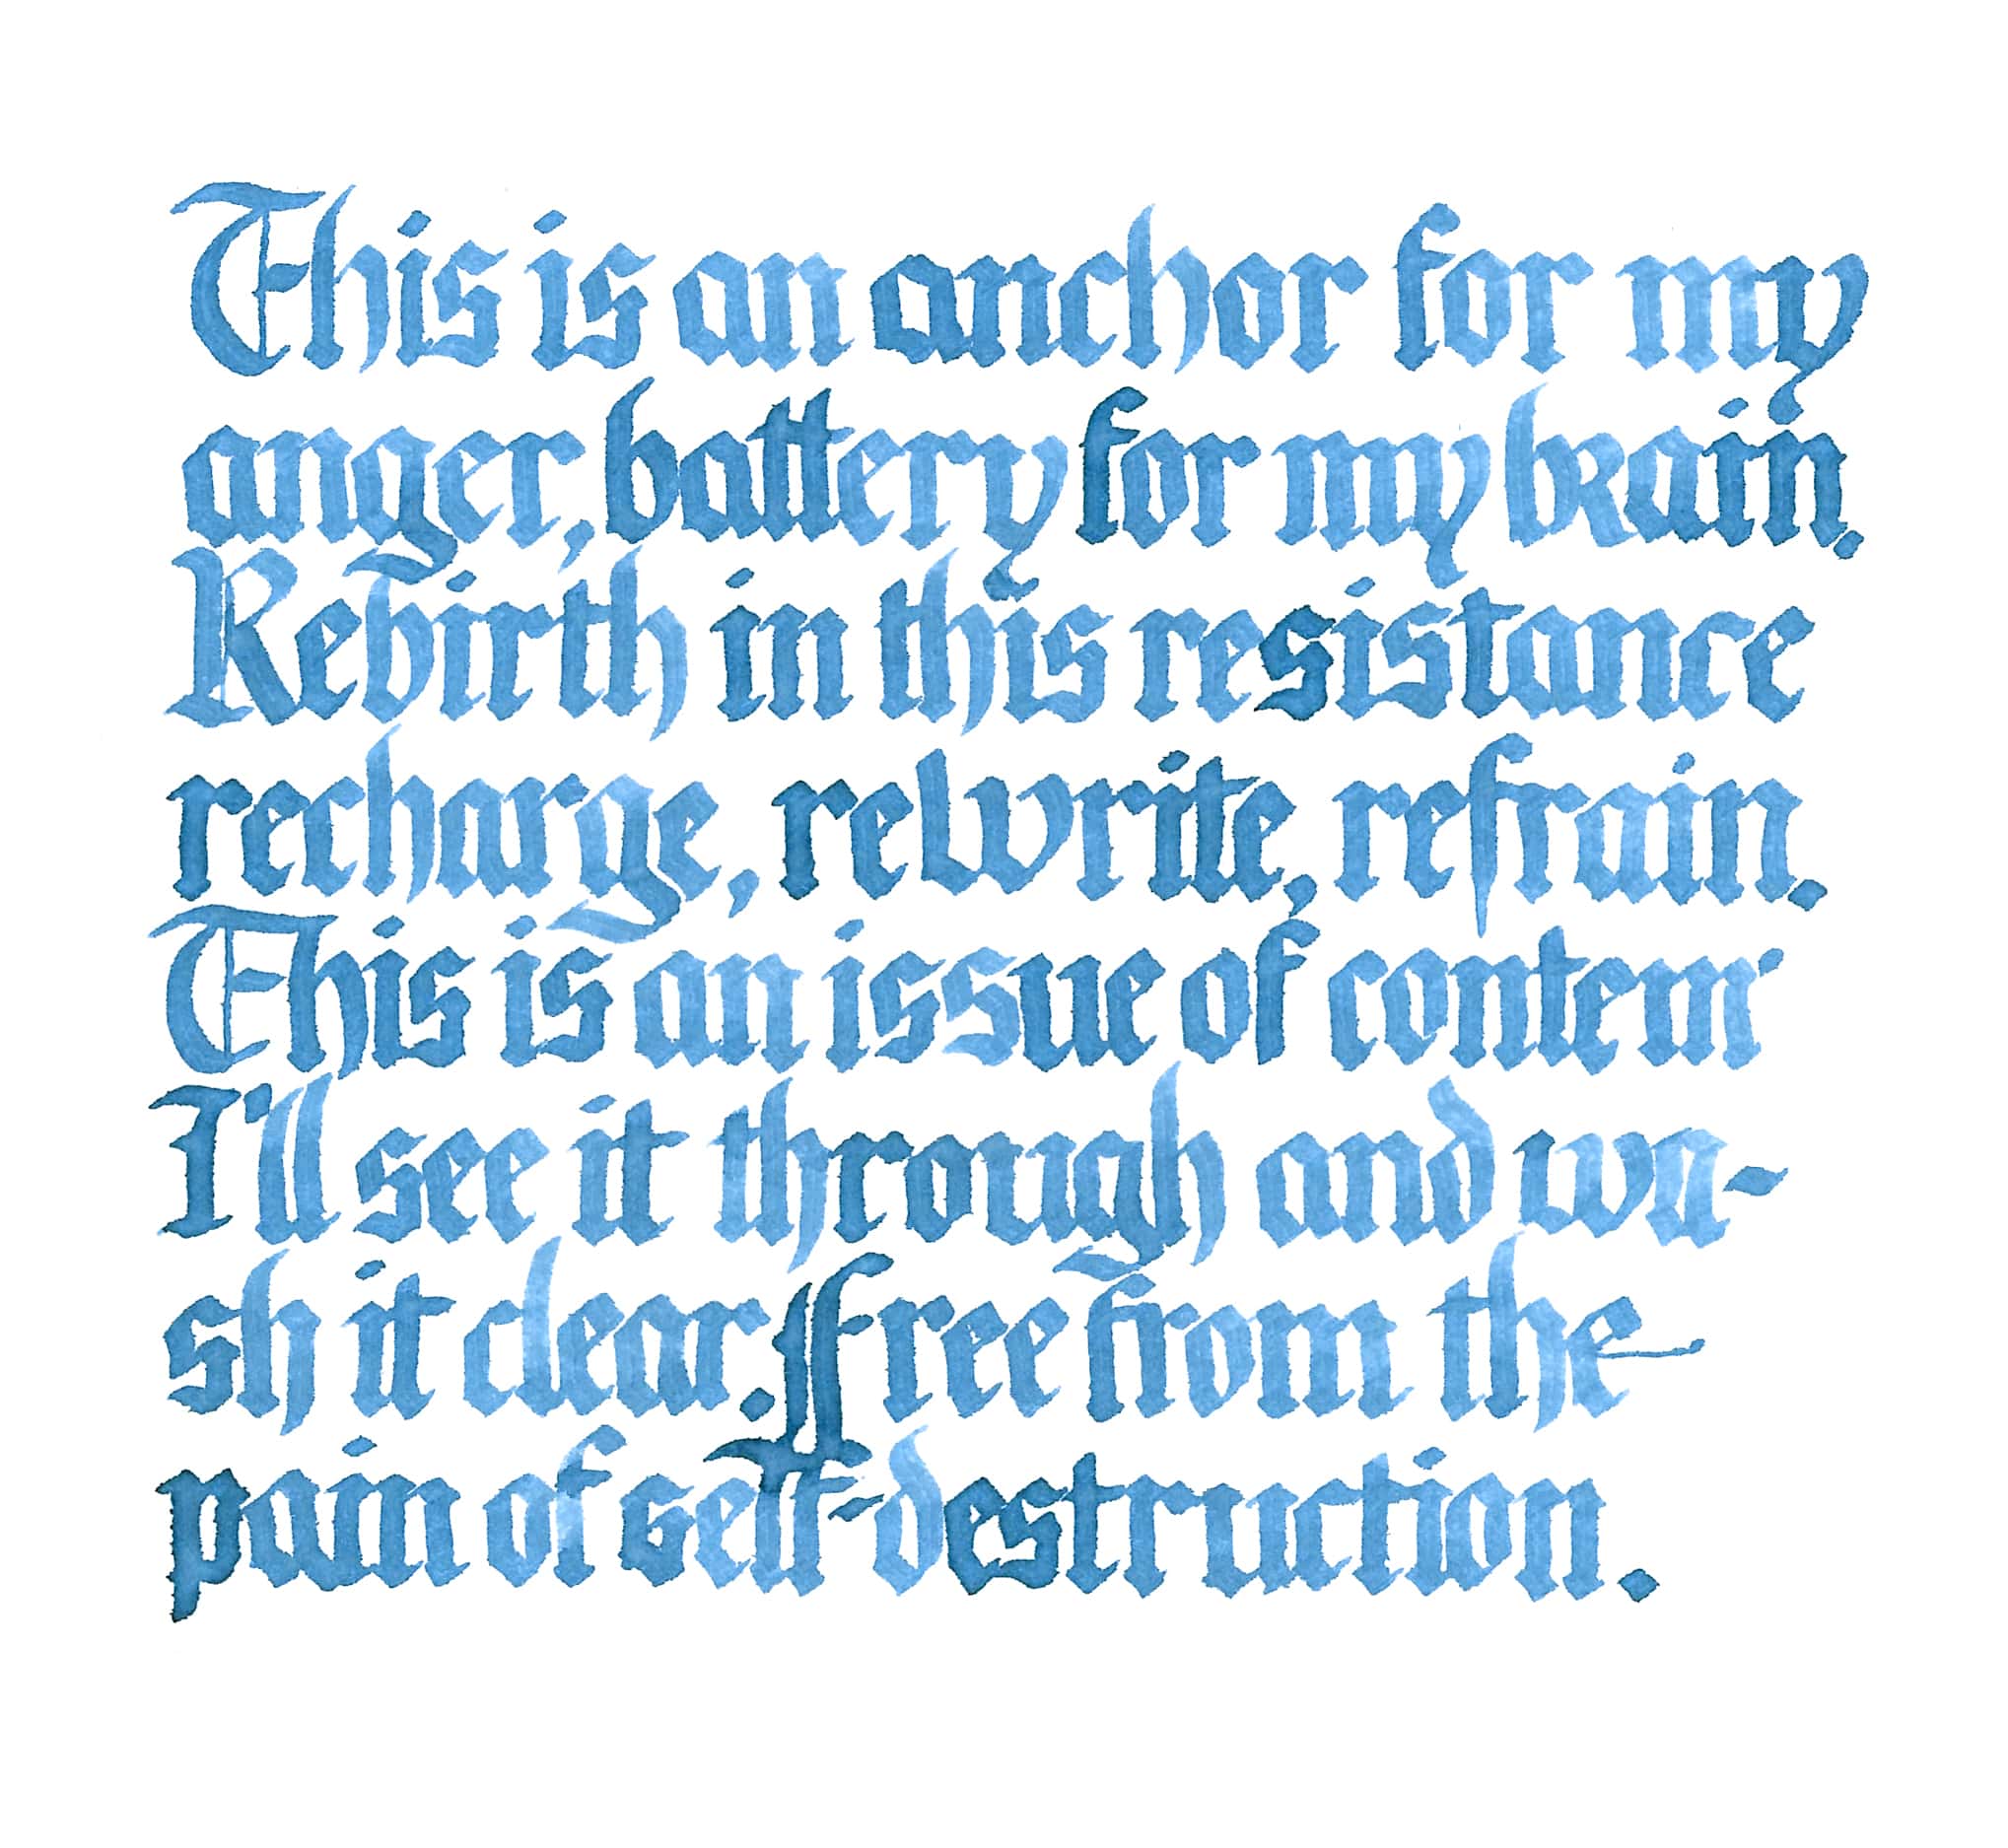 This is an anchor for my
anger, battery for my brain.
Rebirth in this resistance
recharge, rewrite, refrain.
This is an issue of contem'
I'll see it through and wa-
sh it clear. Free from the
pain of self-destruction.